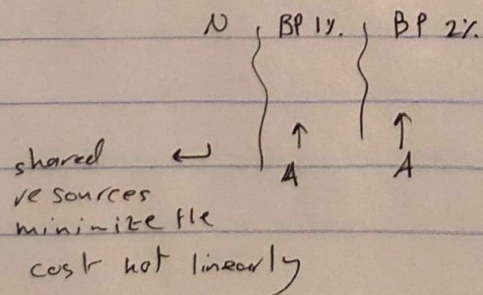 N BP 1%. BP 2%.
A A
shared
resources
minimize the
cost not linearly